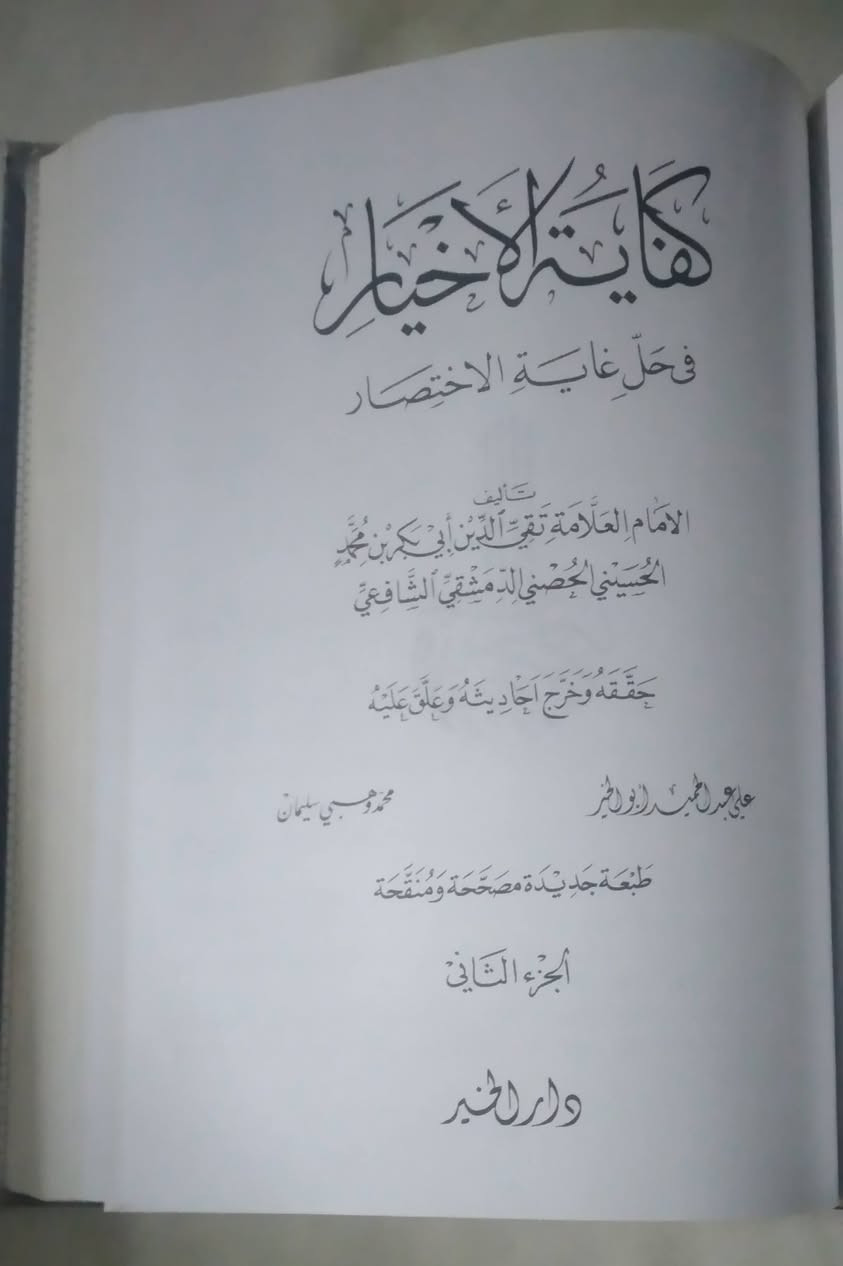 كفَايَةُ الأَخْيَارِ
فى حَلِّ غايَةِ الاختِصَار
تأليف
الامَام العَلَّامَة تَقِيِّ الدِّيْن أَبِيْ بَكر بْن مُحَمَّدٍ
الحُسَيْني الحُصْني الدِّمَشْقِيِّ الشَّافِعيِّ
حَقَّقَهُ وَخَرَّجَ اَحَادِيثَهُ وَعَلَّقَ عَلَيْهُ
علي عبد الحميد ابو الخير
محمد وهبي سليمان
طَبْعَة جَدِيْدَة مصَحَّحَة وَمُنَقَّحَة
الجُزء الثَانيْ
دار الخير